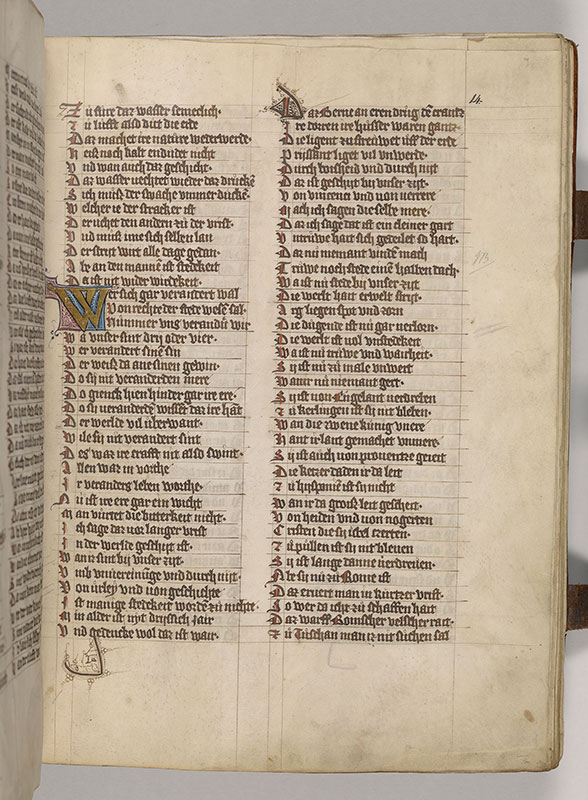 14
Zu füre daz wasser semelich
Zu lufft also dut die erde
Daz machet ire natüre wetterwerde
Heiß noch kalt enduͦ det nicht
Vnd wan auch daz geschicht
Daz wasser vechtet wieder daz drucken
Sich muß der swache vmmer ducken
Welcher ie der stracker ist
Der uchet den andern zu der vrist
Vnd muß ime sich selben lan
Der strit wirt alle dage gedan
Aber an den manne ist stedekeit
Da ist nit wider wirdekeit
Wer sich gar verandert wal
Von rechte der stede wese sal
Nummer vns verandu wir
Wa vnser sint drij oder vier
Wer verandert sine sin
Der weiß da ane sinen gewin
Do sij nit veranderden mere
Do gienck hien hinder gar ire ere
Do sij veranderde wisse daz ire hat
Der werlde vil vberwant
Wile sij nit verandert sint
Des war ire crafft nit also swint
Allen waz in vorhte
Ir veranders leben worhte
Nu ist ire ere gar ein wicht
Man vurtet die bitterkeit nicht
Ich sage daz vor langer vrist
In der werlde geschijt ist
Wan iz sint bij vnser zijt
Vmb vnuereinunge vnd durch nijt
Von vrley vnd von geschichte
Ist manige stedekeit worde zu nichte
Min alder ist nijt drijssich jair
Vnd gedencke wol daz ist wair
Daz Berne an eren drug de crantz
Ire doren ire husser waren gantz
Die ligent zu streuwet vff der erde
Prissant liget vil vnwerde
Durch bosheid vnd durch nijt
Daz ist geschijt bij vnser zijt
Von vincenez vnd von uerrere
Mach ich sagen die selbe mere
Daz ich sage dat ist ein cleiner gart
Vntruwe hait sich gedeilet so hart
Daz nu niemant vinde mach
Truwe noch stede eine halben dach
Wa ist nu stede bij vnser zijt
Die werlt hait erwelt strijt
Arg liegen spot vnd zorn
Die dugende ist nu gar verlorn
Die werlt ist vol vnstedekeit
Wa ist nu truwe vnd warheit
Sij ist nu zu male vnwert
Wanne nu niemant gert
Sij ist von Engelant verdreben
Zu kerlingen ist sij nit bleben
Wan die zwene kunig vnere
Hant ir laut gemachet vnmere
Sij ist auch von prouentze gereit
Die ketzer daden ir da leit
Zu hijspanie ist sij nicht
Wan ir da groiß leit geschert
Von heiden vnd von nogerten
Cristen die sij idel czerten
Zu pullen ist sij nit bleuen
Sij ist lange danne uerdreuen
Abe sij nu zu Rome ist
Daz ervert man in kurtzer vrist
Jo wer da icht zu schaffen hait
Daz warff Romscher velscher rait
Zu Tuschan man iz nit suchen sal